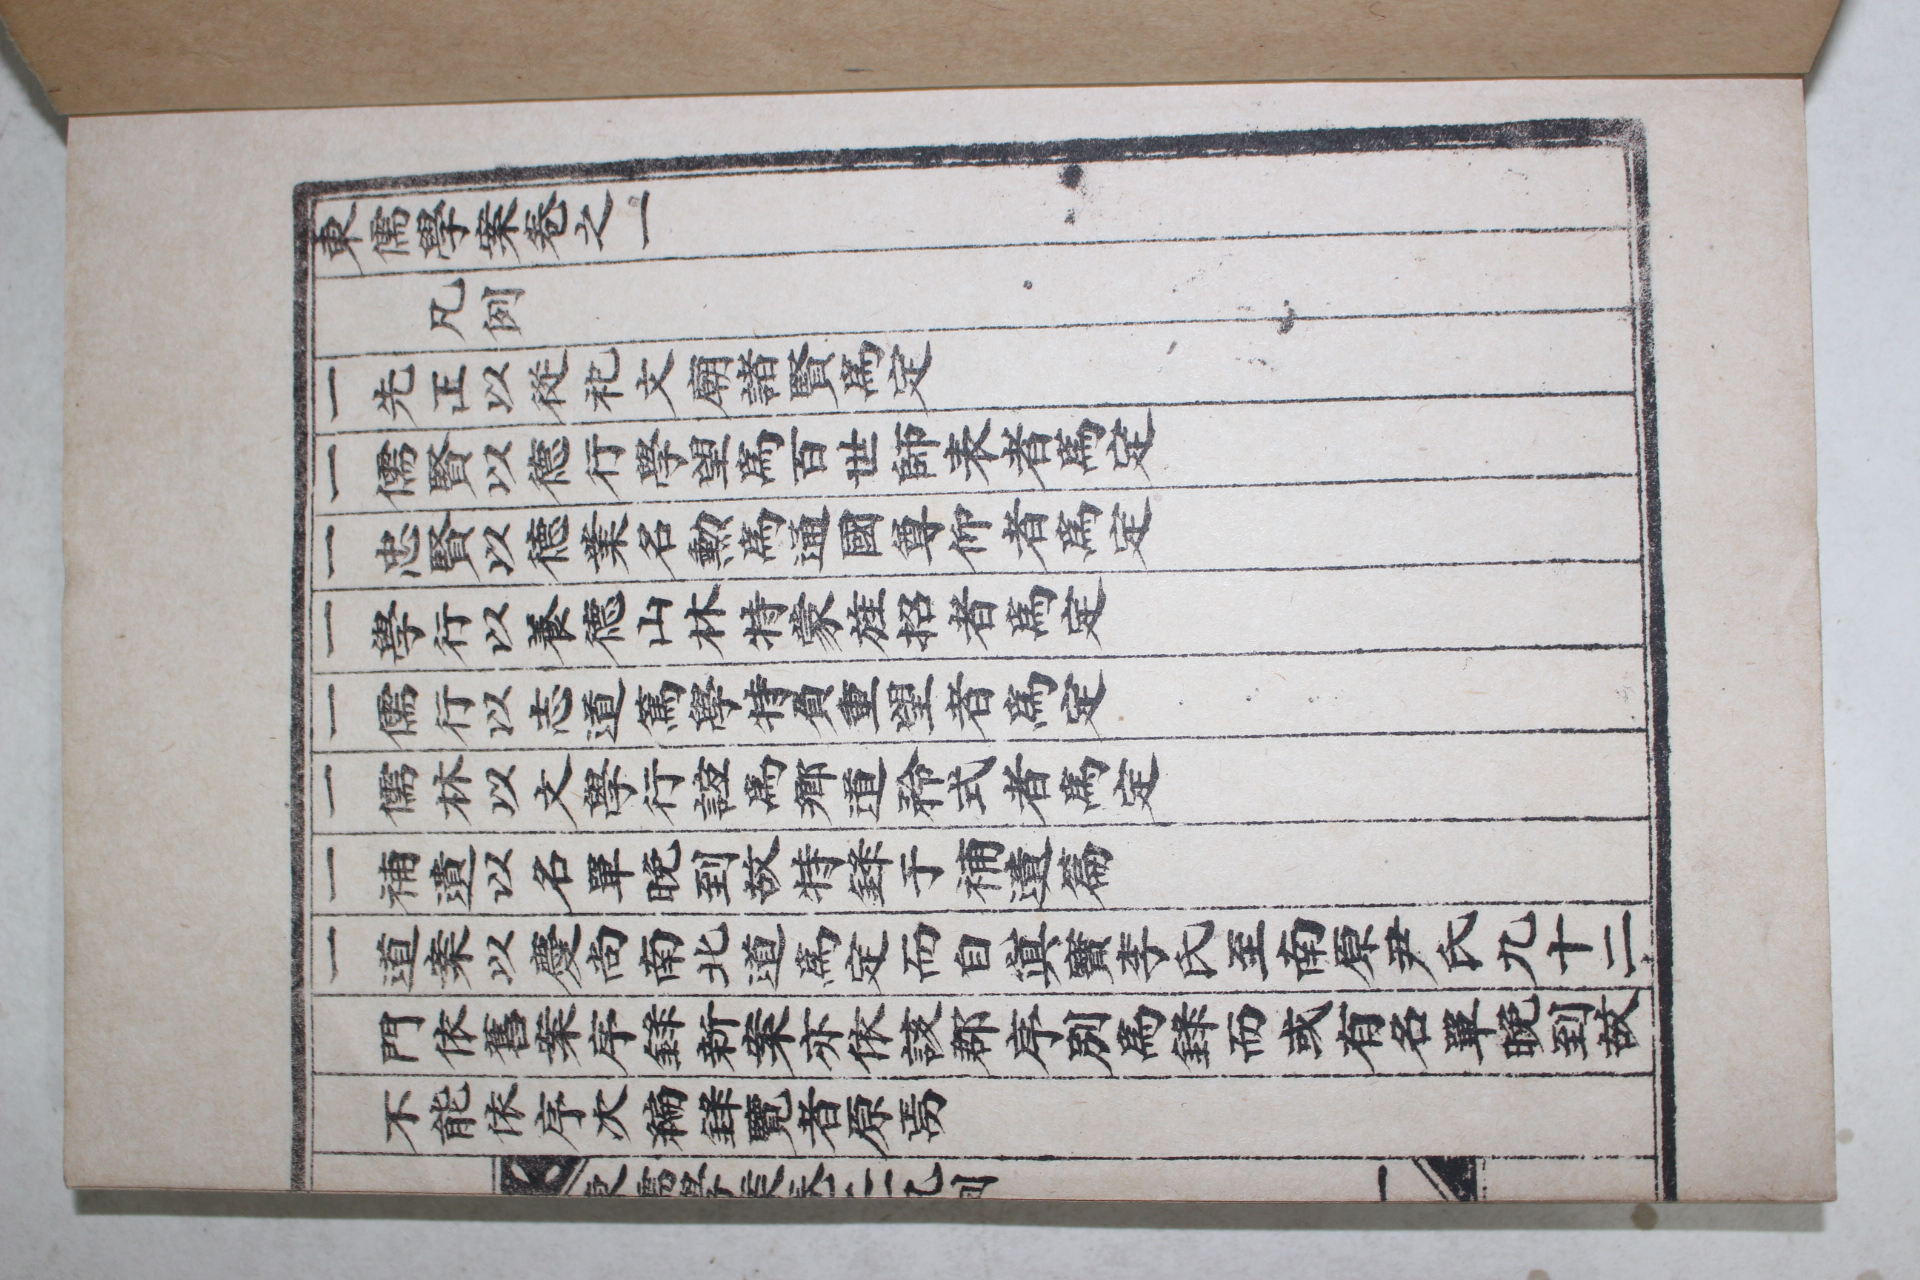 東儒學案卷之一
凡例
一先正以從祀文廟諸賢爲定
一儒賢以德行學望爲百世師表者爲定
一忠賢以德業名勲爲通國尊仰者爲定
一學行以養德山林特蒙旌招者爲定
一儒行以志道篤學特負重望者爲定
一儒林以文學行誼爲鄕道矜式者爲定
一補遺以名單晩到故特錄于補遺篇
一道案以慶尙南北道爲定而自眞寶李氏至南原尹氏九十二
門依舊案序錄新案亦依該郡序別爲錄而或有名單晩到故
不能依序次編錄覽者原焉
東儒學案卷之一凡例
一